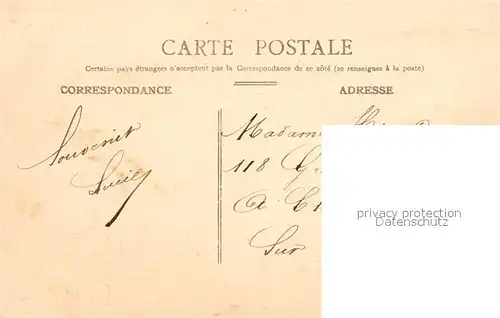 CARTE POSTALE
Certains pays étrangers n'acceptent pas la Correspondance de ce côté (se renseigner à la poste)
CORRESPONDANCE
ADRESSE
Souvenir
Lucie
Madam
118 G
A Ch
Sur
privacy protection
Datenschutz